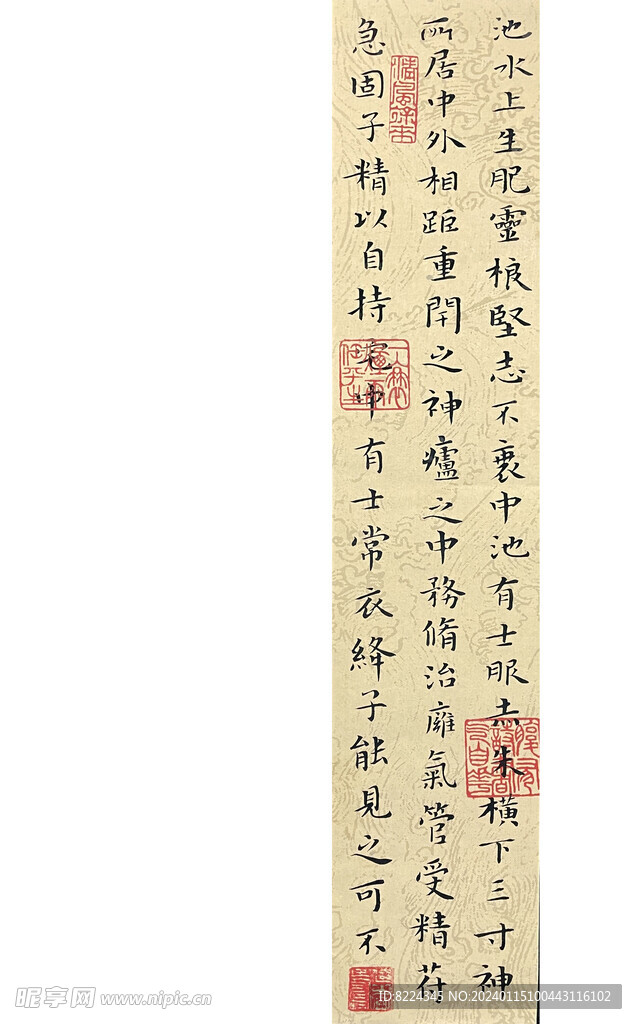 池水上生肥靈根堅志不衰中池有士服赤朱橫下三寸神
所居中外相距重閇之神廬之中務脩治廱氣管受精苻
急固子精以自持宅中有士常衣絳子能見之可不
昵享网 www.nipic.cn
ID:8224345 NO:20240115100443116102